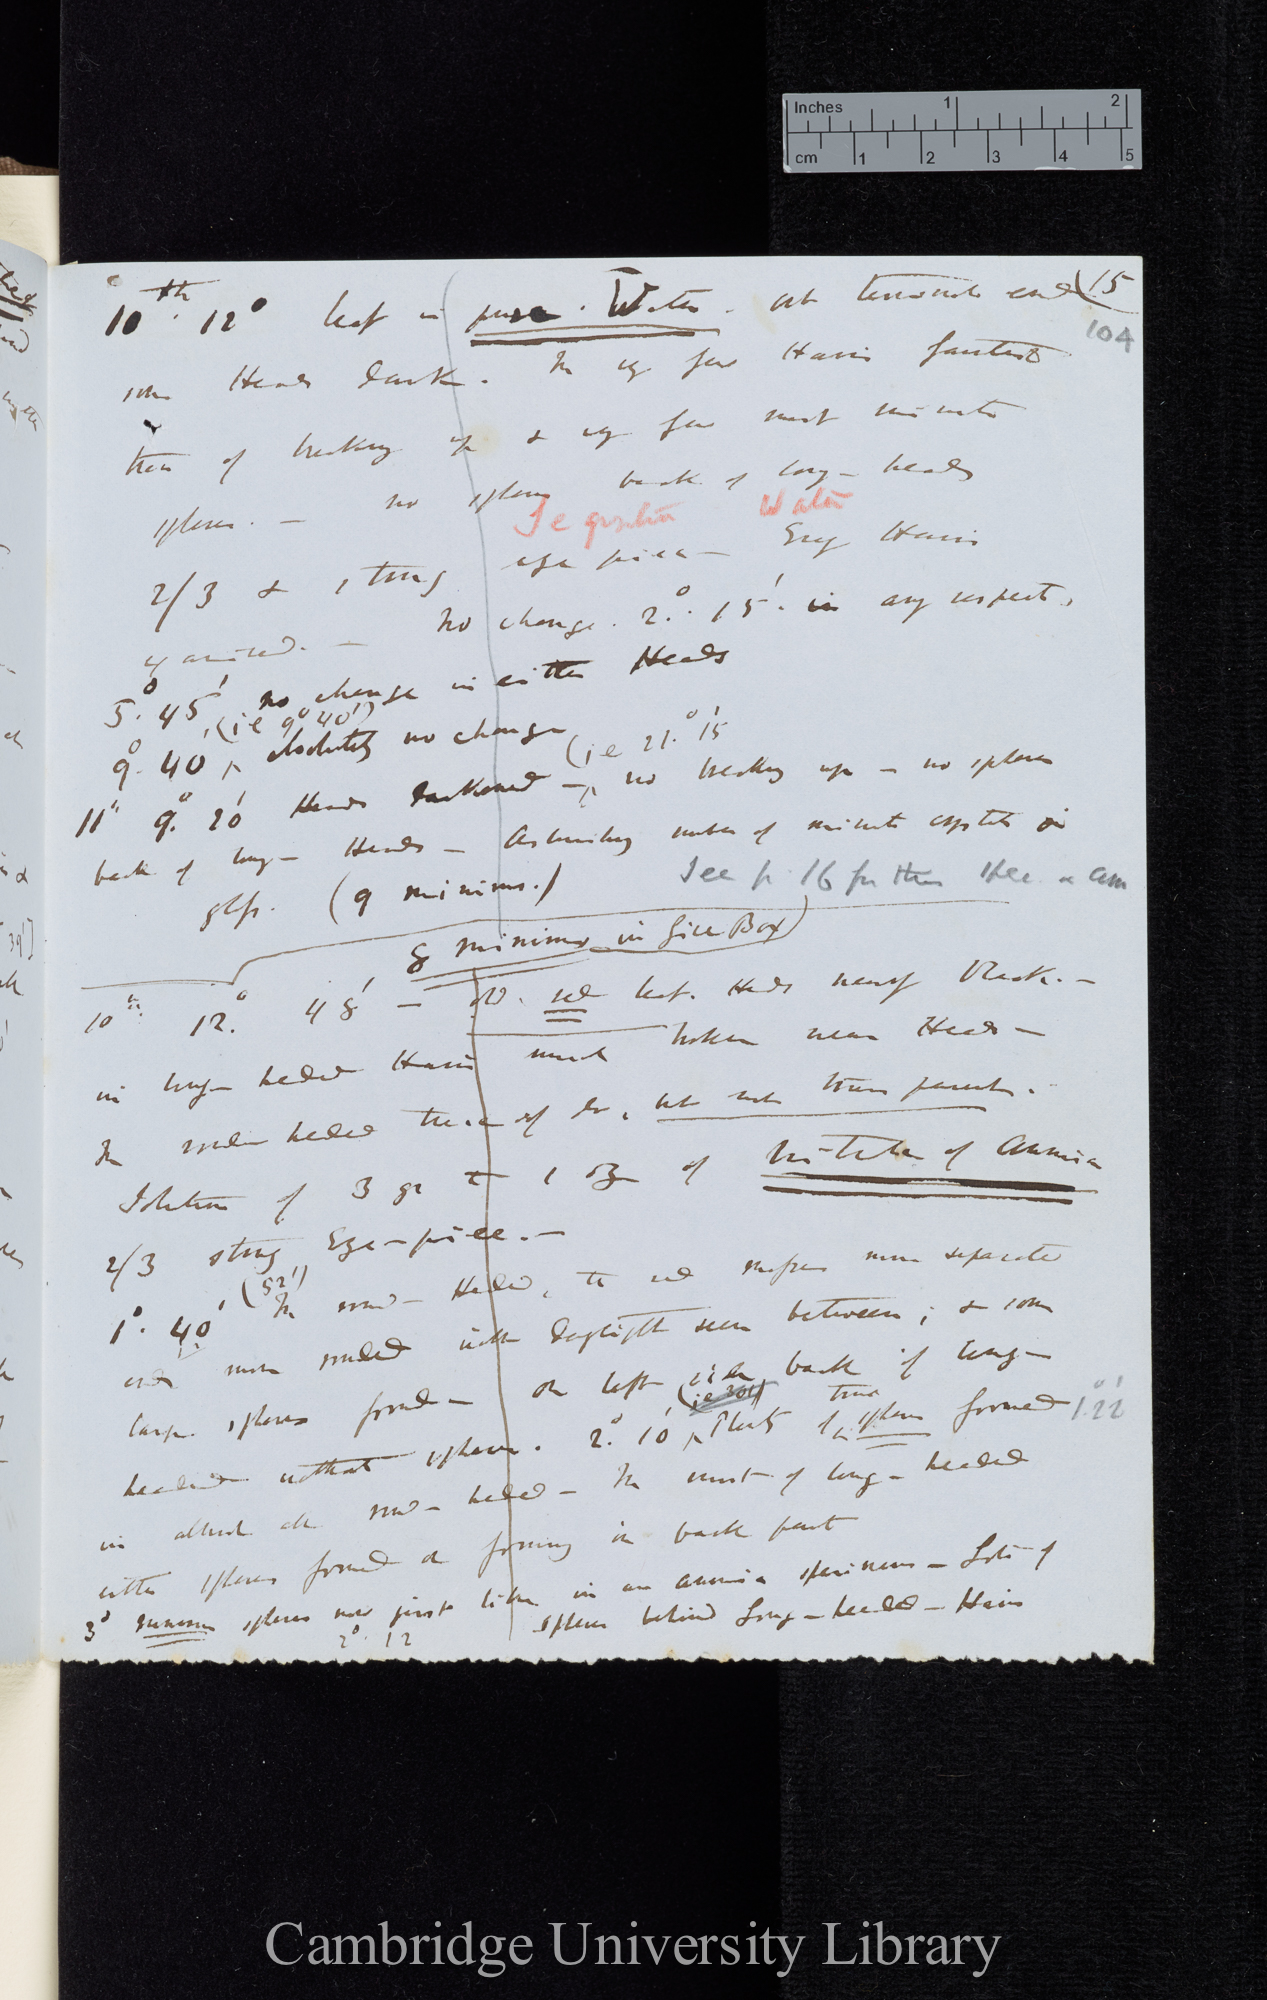 Inches 1 2
cm 1 2 3 4 5
10th. 12° leaf in pure. Water. at terminal end (15
104
some Heads dark. In very few Hairs faintest
trace of breaking up & very few most minute
spheres. — no spheres back of long-heads
Distilled Water
2/3 & strong eye piece — Every Hair
examined. — No change. 2°. 15'. in any respect.
5°. 45' no change in either Heads
(ie 9° 40')
9°. 40', absolutely no change
(ie 21.° 15'
11th 9°. 20' Heads darkened — no breaking up — no spheres
back of long-Heads — Astonishing number of minute crystals on
glass. (9 minims.)
See p. 16 for
8 minims in Glass Box)
10th. 12.° 48' — old. red leaf. Heads nearly Black. —
in long-headed Hairs much broken near Heads —
In round headed trace of do, but not transparent.
Solution of 3 gr to 1 oz of Nitrate of Ammonia
2/3 strong Eye-piece. —
(52')
1°. 40' In round-Headed, the red masses more separate
and more rounded with daylight seen between; & some
large spheres formed — on left side back of long-
headed without spheres. 2.° 10', Plenty of true spheres formed
1.°22'
in almost all round-headed — In most of long-headed
either spheres formed or forming in back part
3° numerous spheres now just like in an ammonia specimens — Lots of
spheres behind Long-headed-Hairs
2°. 12
Cambridge University Library